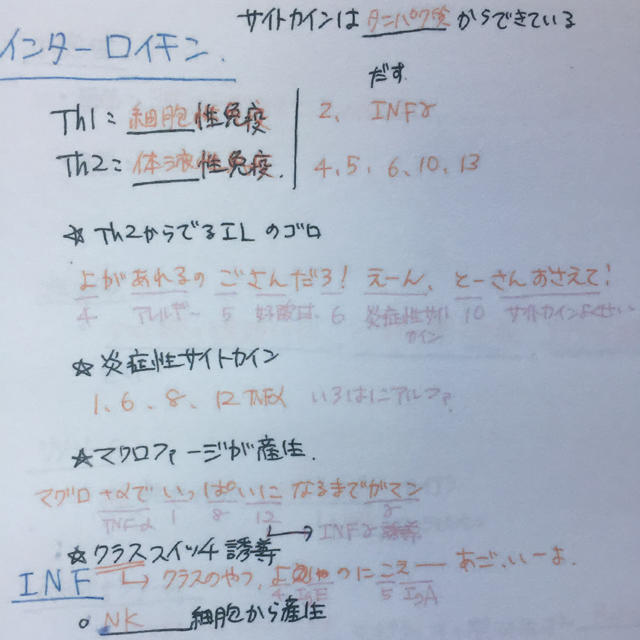 サイトカインは タンパク質 からできている
インターロイキン.
だす
Th1 : 細胞性免疫 2、 INFγ
Th2 : 体液性免疫. 4、5、6、10、13
☆ Th2からでるILのゴロ
よがあれるの ごさんだろ! えーん、とーさんおさえて!
4 アレルギー 5 好酸球 6 炎症性サイトカイン 10 サイトカインよくせい
☆ 炎症性サイトカイン
1、6、8、12 TNFα いろはにアルファ
☆ マクロファージが産生.
マグロ +αで いっぱいに なるまでガマン
TNFα 1 8 12 γ
→ INFγ 誘導
☆ クラススイッチ誘導
→ クラスのやつ、 あご、いーよ.
4 IgE 5 IgA
INF
○ NK 細胞から産生